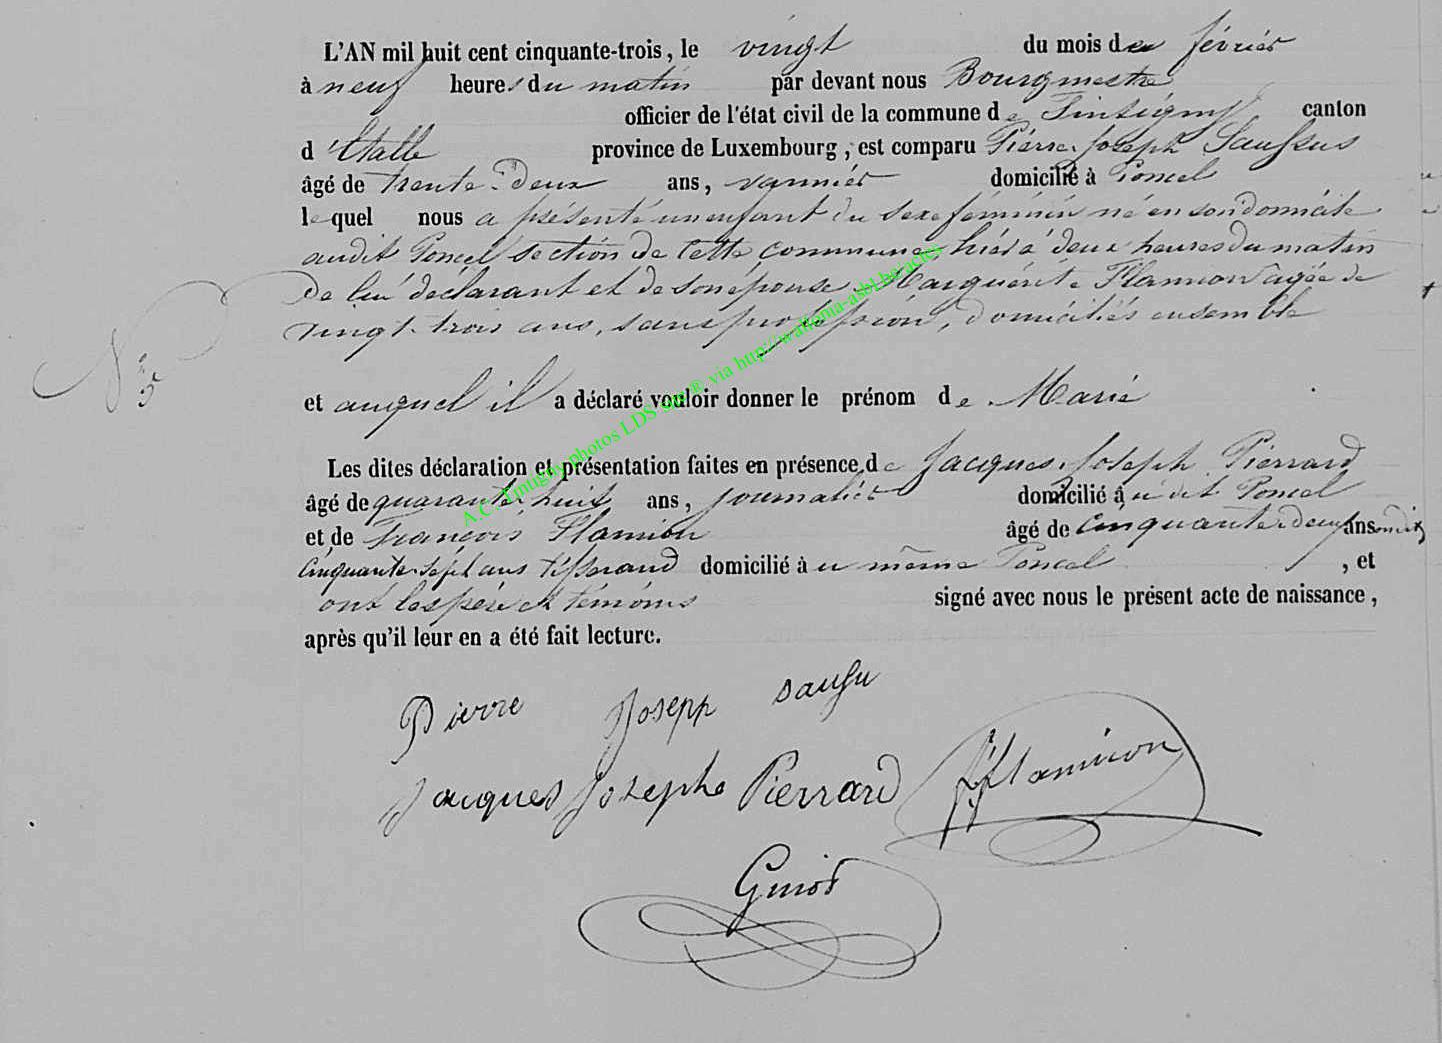 L'AN mil huit cent cinquante-trois, le vingt du mois de février
à neuf heures du matin par devant nous Bourgmestre
officier de l'état civil de la commune de Tintigny canton
d'Etalle province de Luxembourg, est comparu Pierre Joseph Saussus
âgé de trente-deux ans, vannier domicilié à Poncel
lequel nous a présenté un enfant du sexe féminin né en son domicile
audit Poncel section de cette commune hier à deux heures du matin
de lui déclarant et de son épouse Marguérite Flamion agée de
vingt-trois ans, sans profession, domiciliés ensemble
N° 5
et auquel il a déclaré vouloir donner le prénom de Marie
Les dites déclaration et présentation faites en présence de Jacques Joseph Pierrard
âgé de quarante huit ans, journalier domicilié audit Poncel
et de François Flamion âgé de cinquante-deux ans
cinquante-sept ans tisserand domicilié au même Poncel, et
ont les père et témoins signé avec nous le présent acte de naissance,
après qu'il leur en a été fait lecture.
Pierre Josepp sausu
Jacques Josephe Pierrard fflamion
Guiot
A.C. Tintigny photos LDS site ® via http://wallonia-asbl.be/actes